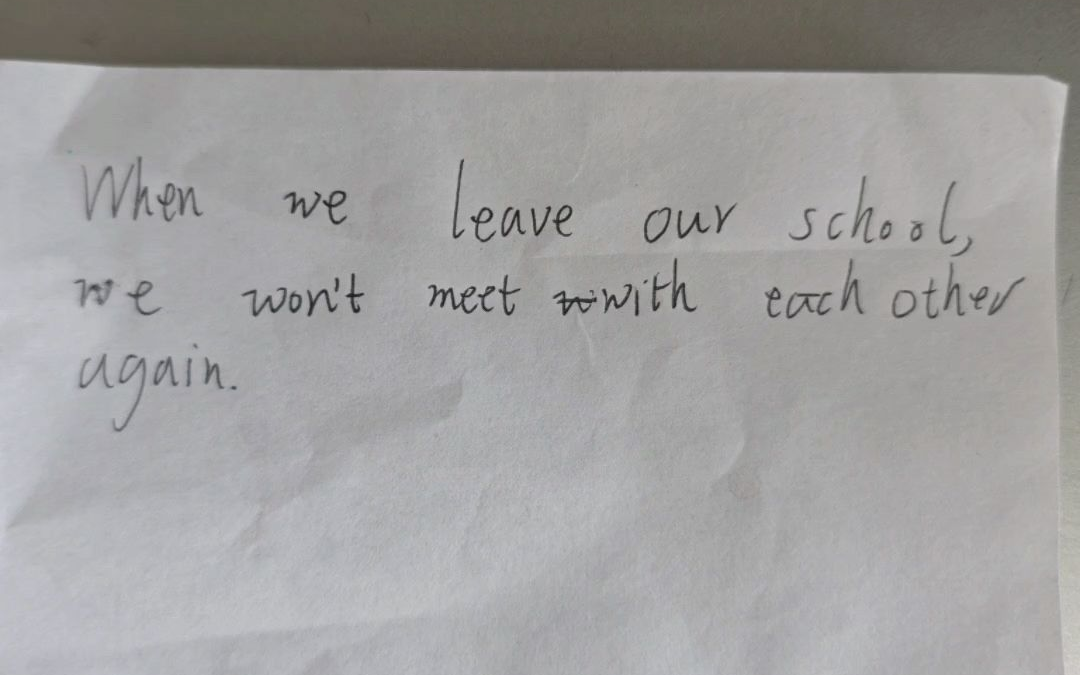 When we leave our school,
we won't meet with each other
again.